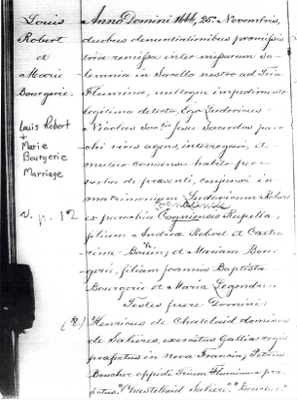 Louis
Robert
et
Marie
Bourgerie.
Louis Robert
+
Marie
Bourgerie
Marriage
v. p. 12
Anno Domini 1666, 25a. Novembris,
duabus denuntiationibus promissis
tria remissa inter missarum so-
lemnia in Sacello nostro ad Tria
Flumina, nulloque impedimento
legitimo detecto, Ego Ludovicus
Nicolas Soctis Jesu Sacerdos paro-
chi vices agens, interrogavi, et
mutuo consensu habito per
verba de presenti, conjunxi in
matrimonium Ludovicum Robert
ex parochia Cogniensis Rupella,
filium Andrea Robert et Catha-
rina Bouin; et Mariam Bour-
gerie, filiam Joannis Baptista
Bourgerie et Maria Legendre.
Testes fuere Domini:
(E.) Henricus de Chateluid dominus
de Salieres, exercitus Gallia regis
prafectus in Nova Francia; Petrus
Boucher oppidi trium Fluminum pra-
fectus. "Chastelluid Salieres." "Boucher."